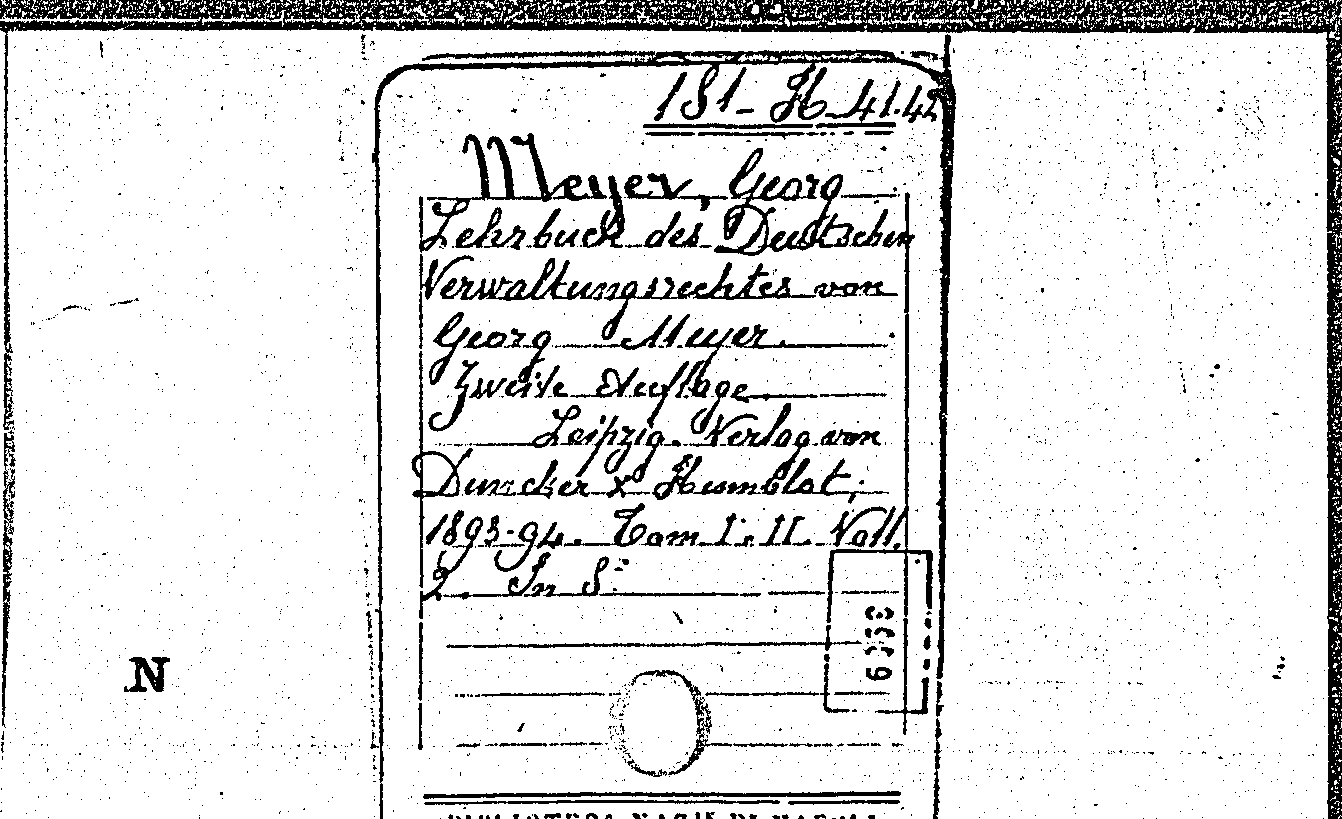 181-H-41.42
Meyer, Georg
Lehrbuch des Deutschen
Verwaltungsrechtes von
Georg Meyer.
Zweite Auflage
Leipzig. Verlag von
Duncker & Humblot,
1893-94. Tom I. II. Voll.
2. In 8º
N